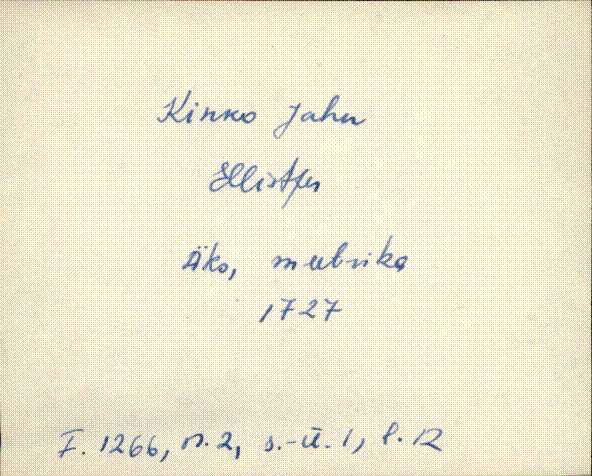 Kinko Jahn
Ellistfer
Äks, meetrika
1727
F. 1266, n. 2, s.-ü. 1, l. 12